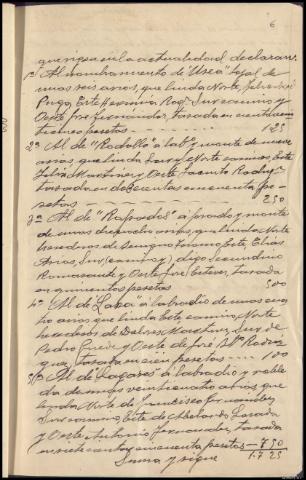 6
que rigen en la actualidad declaran.
1ª Al nombramiento de "Usea" tojal de
unas seis areas, que linda Norte,
Puga, Este Herminia Sur camino y
Oeste Fernandez, tasada en ciento vein
ticinco pesetas 125
2ª Al de "Radollo" a lab° y monte de nueve
areas que linda Sur y Norte camino, Este
Felix Martinez y Oeste Jacinto Rodrz
tasada en doscientas cincuenta pe
setas 250
3ª Al de "Raposdos" a prado y monte
de unas dieciocho areas, que linda Norte
herederos de Este Elias
Arias, Sur (camino y) digo Secundino
y Oeste José Estever, tasada
en quinientas pesetas 500
4ª Al de "Laba" a labradio de unas cua
tro areas que linda Este camino, Norte
herederos de Dolores Martinez, Sur de
Pedro y Oeste de José Mª Rodri
guez, tasada en cien pesetas 100
5ª Al de "Lagares" a labradio y roble
da de unas veinticuatro areas que
linda Norte de Francisco Fernandez,
Sur camino, Este de Abelardo Losada
y Oeste Antonio Fernandez, tasada
en setecientas cincuenta pesetas 750
Suma y sigue 1.725